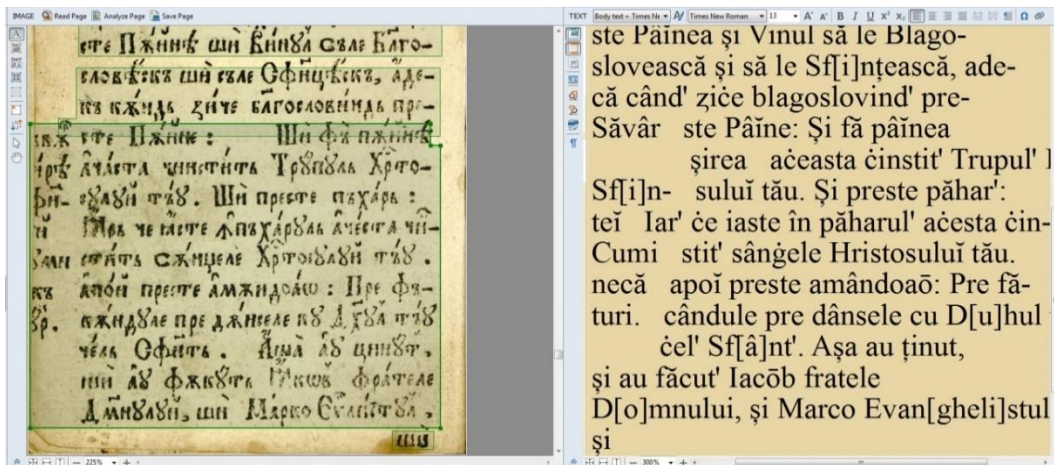 IMAGE Read Page Analyze Page Save Page
сте Пѫинѣ ши Винꙋл съле Благо-
словѣскъ ши съле Сфинцѣскъ, аде-
къ кѫндь зиче благословиндь пре-
сте Пѫине : Ши фъ пѫинѣ
ачаста чинститъ Трꙋпꙋль Хрто-
сꙋлꙋй тъꙋ. Ши престе пъхарь :
че ꙗсте ꙟпъхарꙋль ачеста чи-
ститъ сѫнџеле Хртосꙋлꙋй тъꙋ.
апой престе амѫндоаѡ : Пре фъ-
кѫндꙋле пре дѫнселе кꙋ Дхꙋл тъꙋ
чель Сфѫнть. Аша аꙋ цинꙋт,
ши аꙋ фъкꙋть Іакѡв фрателе
Дмнꙋлꙋй, ши Марко
ши
225%
TEXT Body text + Times Ne Times New Roman 13 B I U X² X₂
ste Pâĭnea și Vinul să le Blago-
slovească și să le Sf[i]nțească, ade-
că când' ziċe blagoslovind' pre-
Săvâr ste Pâĭne: Și fă pâĭnea
șirea aċeasta ċinstit' Trupul'
Sf[i]n- suluĭ tău. Și preste păhar':
teĭ Iar' ċe iaste în păharul' aċesta ċin-
Cumi stit' sânġele Hristosuluĭ tău.
necă apoĭ preste amândoaō: Pre fă-
turi. cândule pre dânsele cu D[u]hul
ċel' Sf[â]nt'. Așa au ținut,
și au făcut' Iacōb fratele
D[o]mnului, și Marco Evan[gheli]stul
și
300%